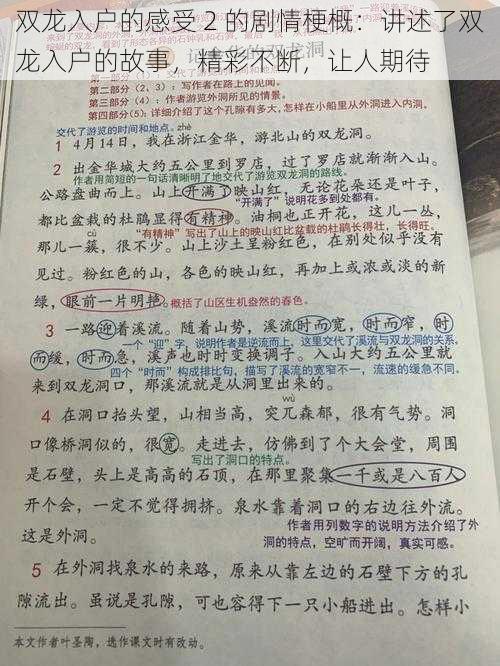 双龙入户的感受 2 的剧情梗概：讲述了双
龙入户的故事，精彩不断，让人期待
第二部分（2、3）：写作者在路上的见闻。
第三部分（4）：作者游览外洞所见的情景。
第四部分(5)：详细介绍了这个孔隙有多大，怎样在小船里从外洞进入内洞。
交代了游览的时间和地点。zhè
1 4月14日，我在浙江金华，游北山的双龙洞。
2 出金华城大约五公里到罗店，过了罗店就渐渐入山。
作者用简短的一句话清晰明了地交代了游览双龙洞的路线。
公路盘曲而上。山上开满了映山红，无论花朵还是叶子，
“开满了”说明花多到处都有。
都比盆栽的杜鹃显得有精神。油桐也正开花，这儿一丛，
“有精神”写出了山上的映山红比盆栽的杜鹃长得壮，长得旺。
cù
那儿一簇，很不少。山上沙土呈粉红色，在别处似乎没有
见过。粉红色的山，各色的映山红，再加上或浓或淡的新
绿，眼前一片明艳。概括了山区生机盎然的春色。
3 一路迎着溪流。随着山势，溪流时而宽，时而窄，时
一个“迎”字，说明作者是逆流而上，这里交代了溪流与双龙洞的关系。
而缓，时而急，溪声也时时变换调子。入山大约五公里就
四个“时而”构成排比句，描写了溪流的宽窄不一，流速的缓急不同。
来到双龙洞口，那溪流就是从洞里出来的。
wù
4 在洞口抬头望，山相当高，突兀森郁，很有气势。洞
口像桥洞似的，很宽。走进去，仿佛到了个大会堂，周围
写出了洞口的特点。
是石壁，头上是高高的石顶，在那里聚集一千或是八百人
开个会，一定不觉得拥挤。泉水靠着洞口的右边往外流。
作者用列数字的说明方法介绍了外
这是外洞。
洞的特点，空旷而开阔，真实可感。
5 在外洞找泉水的来路，原来从靠左边的石壁下方的孔
隙流出。虽说是孔隙，可也容得下一只小船进出。怎样小
本文作者叶圣陶，选作课文时有改动。